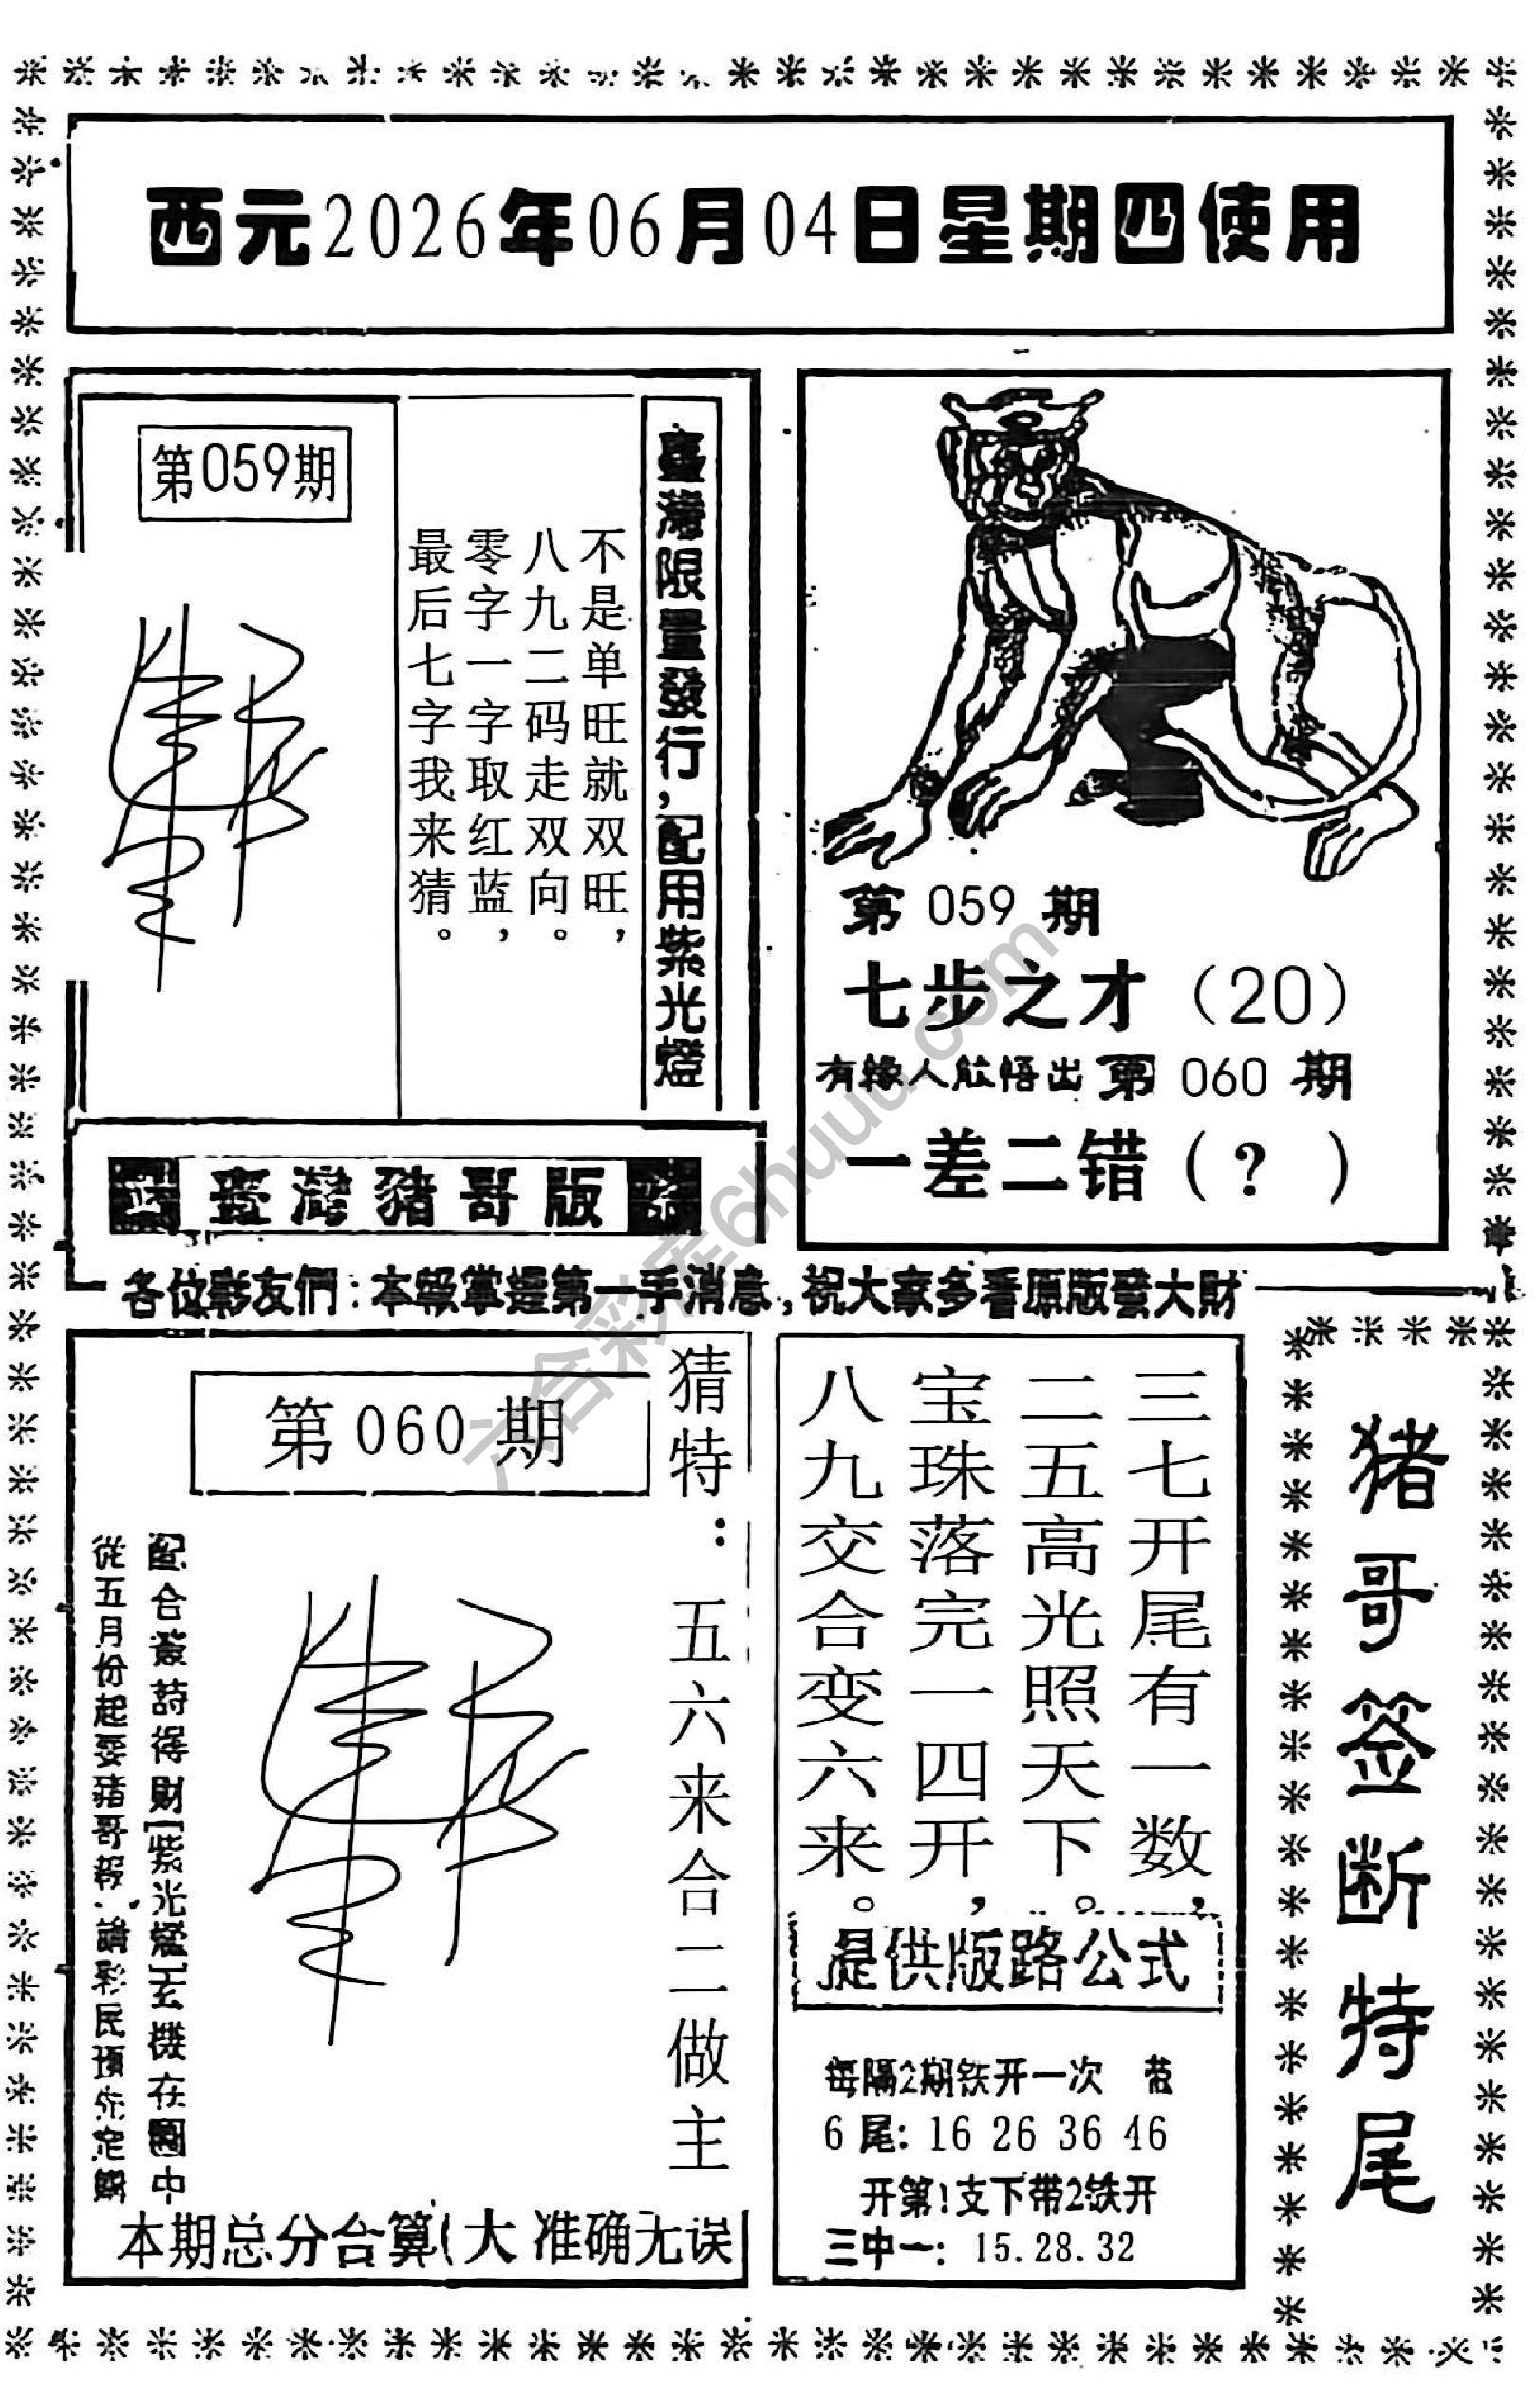 西元2026年06月04日星期四使用
第059期
不是单旺就双旺，
八九二码走双向。
零字一字取红蓝，
最后七字我来猜。
臺灣限量發行，配用紫光燈
第 059 期
七步之才（20）
有緣人能悟出 第 060 期
一差二错（？ ）
臺灣豬哥版
各位彩友們：本報掌握第一手消息，祝大家多看原版發大財
第 060 期
猜特：五六来合二做主
配合叢詩得財[紫光燈]玄機在圖中
從五月份起要豬哥報、請彩民預先定購
本期总分合算(大 准确无误
三七开尾有一数，
二五高光照天下。
宝珠落完一四开，
八九交合变六来。
提供版路公式
每隔2期铁开一次
6 尾: 16 26 36 46
开第1支下带2铁开
三中一: 15.28.32
猪哥签断特尾
六合彩库6huuu.com